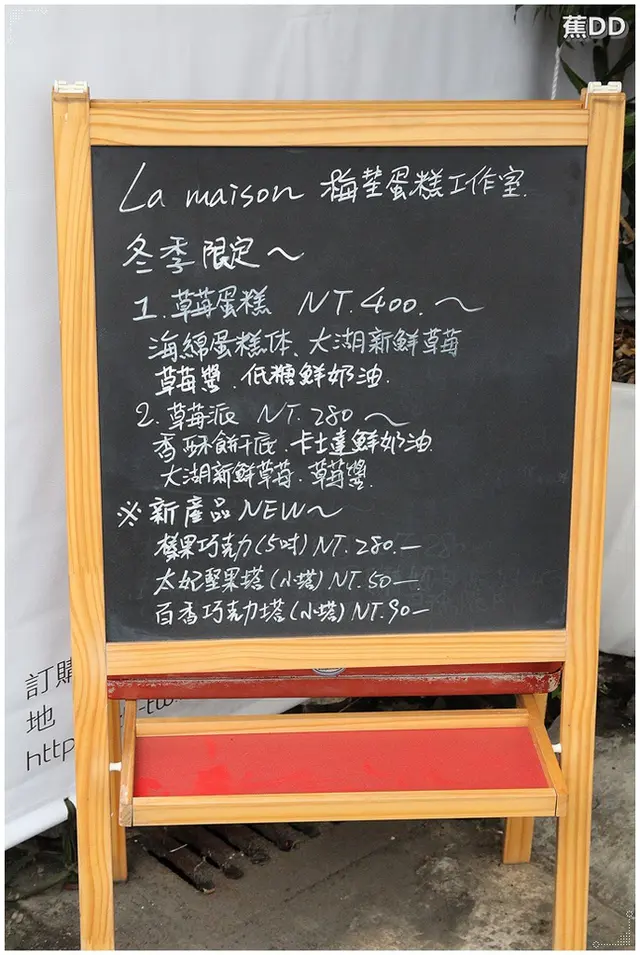 蕉DD
La maison 梅莖蛋糕工作室.
冬季限定～
1. 草莓蛋糕 NT.400.～
海綿蛋糕体、大湖新鮮草莓
草莓醬.低糖鮮奶油.
2. 草莓派 NT.280～
香酥餅干底.卡士達鮮奶油.
大湖新鮮草莓.草莓醬.
※新產品NEW～
榛果巧克力(5吋)NT.280.—
太妃堅果塔(小塔)NT.50—.
百香巧克力塔(小塔)NT.90—
訂購
地
http